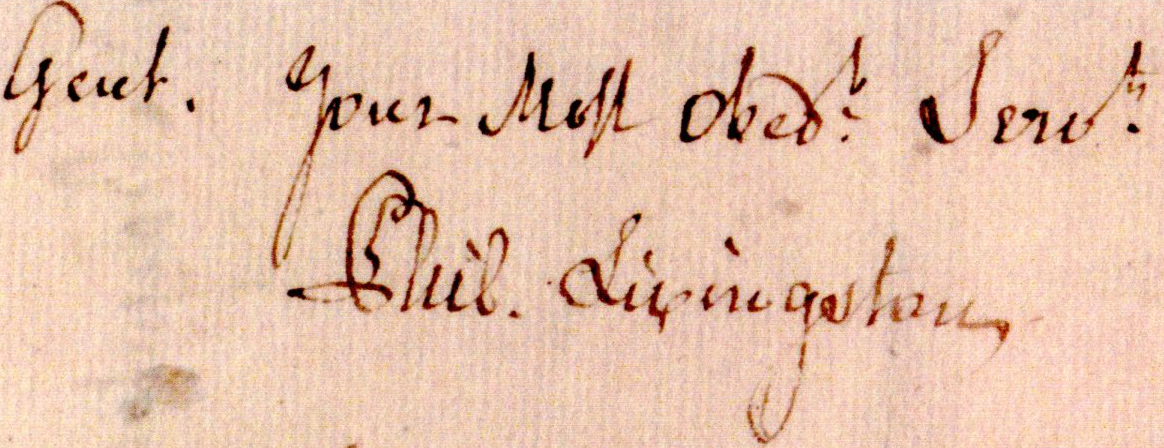 Gent. Your Most Obedt. Servt.
Phil. Livingston